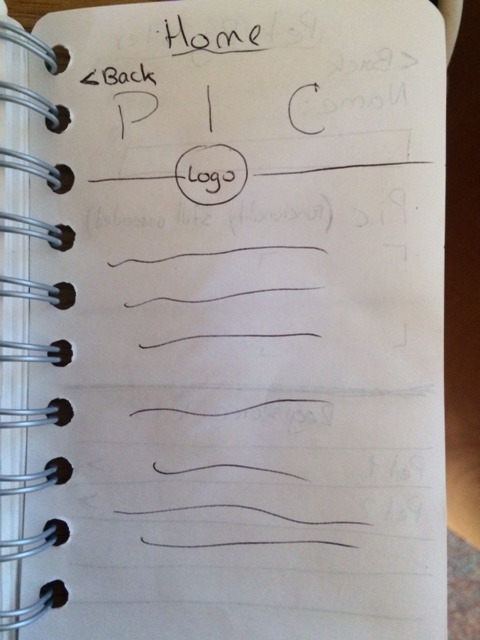 Home
<Back
P I C
Logo